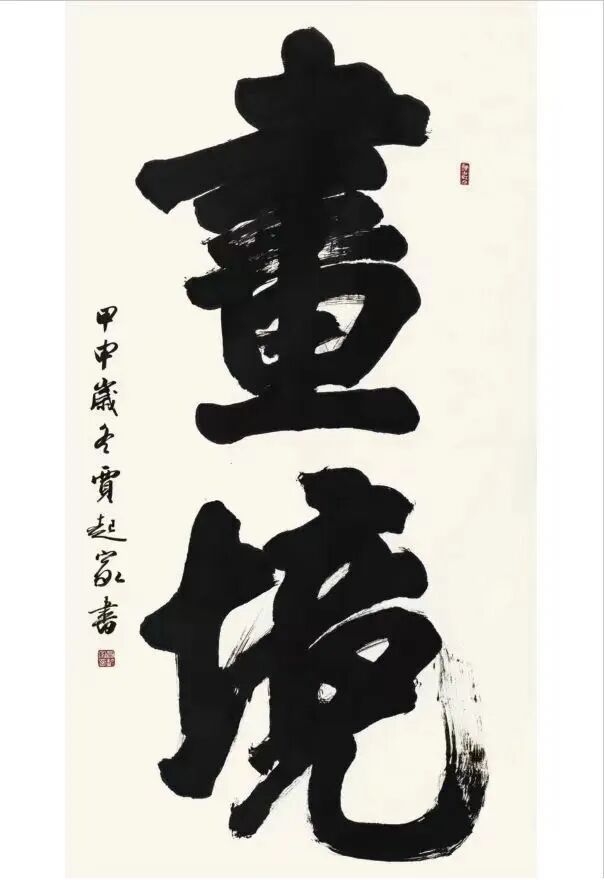 畫境
甲申歲冬賈起家書